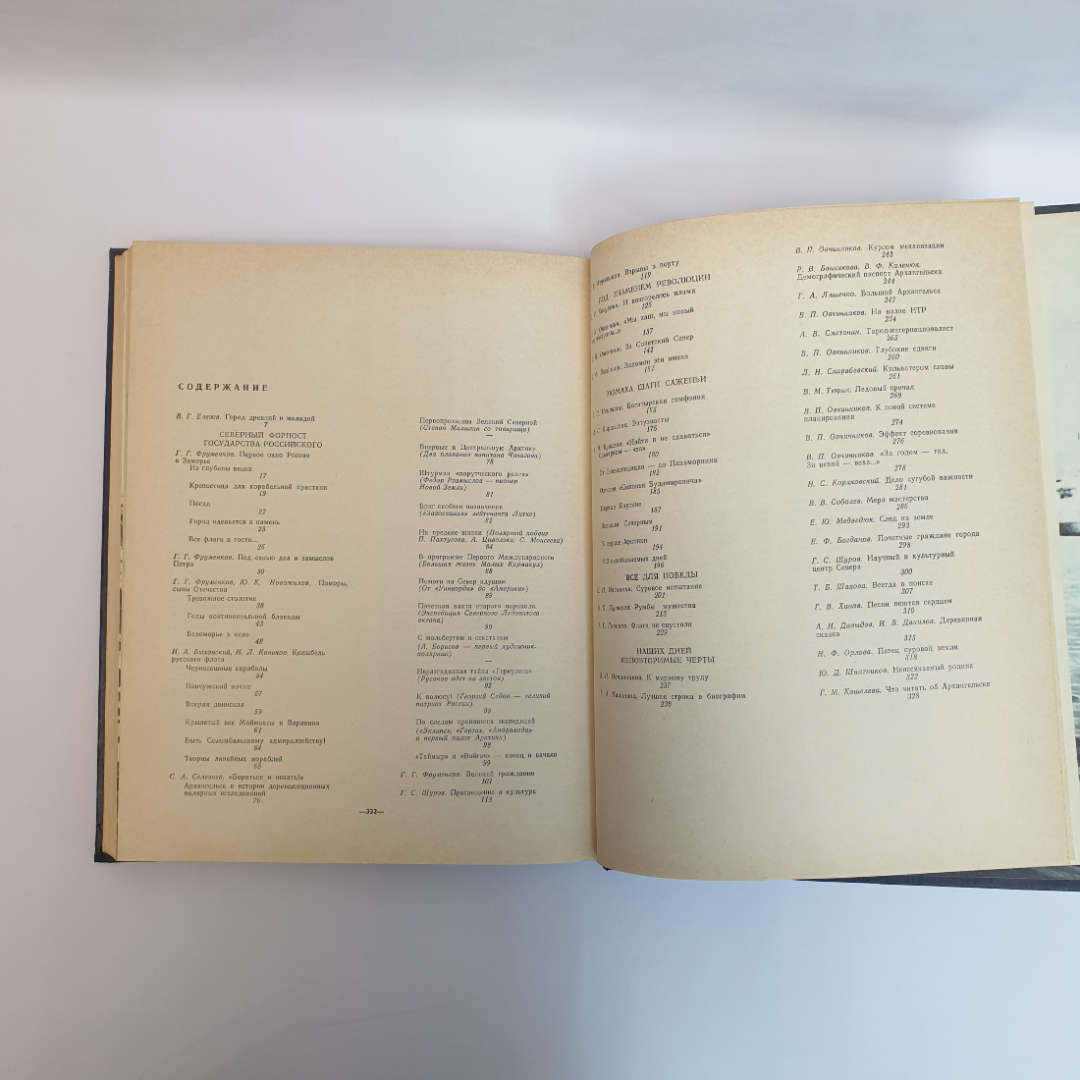 СОДЕРЖАНИЕ
В. Г. Елезов. Город древний и молодой
7
СЕВЕРНЫЙ ФОРПОСТ
ГОСУДАРСТВА РОССИЙСКОГО
Г. Г. Фруменков. Первое окно России
в Заморье
Из глубины веков
17
Крепостица для корабельной пристани
19
Посад
22
Город одевается в камень
23
Все флаги в гости...
26
Г. Г. Фруменков. Под сенью дел и замыслов
Петра
30
Г. Г. Фруменков, Ю. К. Новожилов. Поморы,
сыны Отечества
Тревожное столетие
38
Годы континентальной блокады
43
Беломорье в огне
48
И. А. Быховский, Н. Л. Коньков. Колыбель
русского флота
Черносошные карабелы
54
Вавчужский почин
57
Вторая двинская
59
Крылатый век Маймаксы и Варавина
61
Быть Соломбальскому адмиралтейству!
64
Творцы линейных кораблей
68
С. А. Селезнев. «Бороться и искать!»
Архангельск в истории дореволюционных
полярных исследований
76
Первопроходцы Великой Северной
(Степан Малыгин со товарищи)
—
Впервые в Центральную Арктику
(Два плавания капитана Чичагова)
78
Штурман «порутческого ранга»
(Федор Розмыслов — пионер
Новой Земли)
81
Бриг особого назначения
лейтенанта Литке)
83
На пределе жизни (Полярный подвиг
П. Пахтусова, А. Циволько, С. Моисеева)
84
В программе Первого Международного
(Большая жизнь Малых Кармакул)
88
Помоги на Север идущим
(От «Уингорда» до «Америки»)
89
Почетная вахта старого морехода
(Экспедиция Северного Ледовитого
океана)
90
С мольбертом и секстаном
(А. Борисов — первый художник-
полярник)
—
Неразгаданная тайна «Геркулеса»
(Русанов идет на восток)
92
К полюсу! (Георгий Седов — великий
патриот России)
95
По следам пропавших экспедиций
(«Эклипс», «Герта», «Андромеда»
и первый пилот Арктики)
98
«Таймыр» и «Вайгач» — конец и начало
99
Г. Г. Фруменков. Великий гражданин
101
Г. С. Щуров. Просвещение и культура
113
—332—
Взрывы в порту
119
ПОД ЗНАМЕНЕМ РЕВОЛЮЦИИ
И возгорелось пламя
128
«Мы наш, мы новый
137
За Советский Север
142
Запомни эти имена
151
РАЗМАХА ШАГИ САЖЕНЬИ
Богатырская симфония
165
Энтузиасты
176
«Найти и не сдаваться»
180
до Плавморнина
182
185
187
Северным
191
В сердце Арктики
194
812 незабываемых дней
196
ВСЕ ДЛЯ ПОБЕДЫ
Суровое испытание
201
Румбы мужества
215
Флага не спустили
223
НАШИХ ДНЕЙ
НЕПОВТОРИМЫЕ ЧЕРТЫ
К мирному труду
237
Лучшая строка в биографии
238
В. П. Овчинников. Курсом механизации
243
Р. В. Банникова, В. Ф. Каленюк.
Демографический паспорт Архангельска
244
Г. А. Ляшенко. Большой Архангельск
247
В. П. Овчинников. На волне НТР
254
А. В. Сметанин. Город-интернационалист
265
В. П. Овчинников. Глубокие сдвиги
260
Л. Н. Скарабевский. Кильватером славы
261
В. М. Тювин. Ледовый причал
269
В. П. Овчинников. К новой системе
планирования
274
В. П. Овчинников. Эффект соревнования
276
В. П. Овчинников. «За годом — год.
За вехой — веха...»
278
Н. С. Корякоский. Дело сугубой важности
281
В. В. Соболев. Мера мастерства
286
Е. Ю. Медведюк. След на земле
293
Е. Ф. Богданов. Почетные граждане города
298
Г. С. Щуров. Научный и культурный
центр Севера
300
Т. Б. Шахова. Всегда в поиске
307
Г. В. Ханов. Песни поются сердцем
310
А. Н. Давыдов, И. В. Данилов. Деревянная
сказка
315
Н. Ф. Орлова. Певец суровой земли
318
Ю. Д. Шнитников. Неиссякаемый родник
322
Г. М. Кошелева. Что читать об Архангельске
328